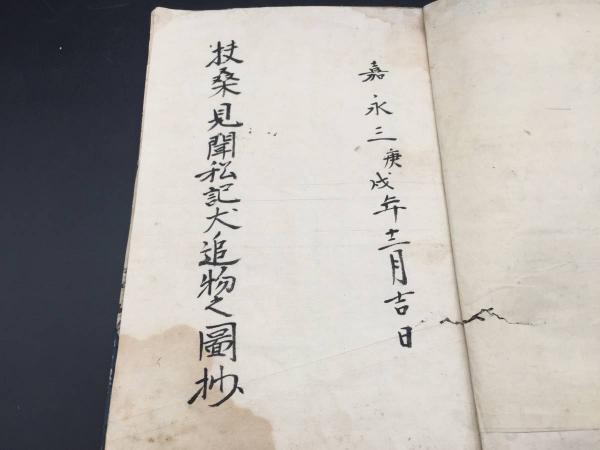 嘉永三庚戌年十二月吉日
扶桑見聞私記犬追物之圖抄